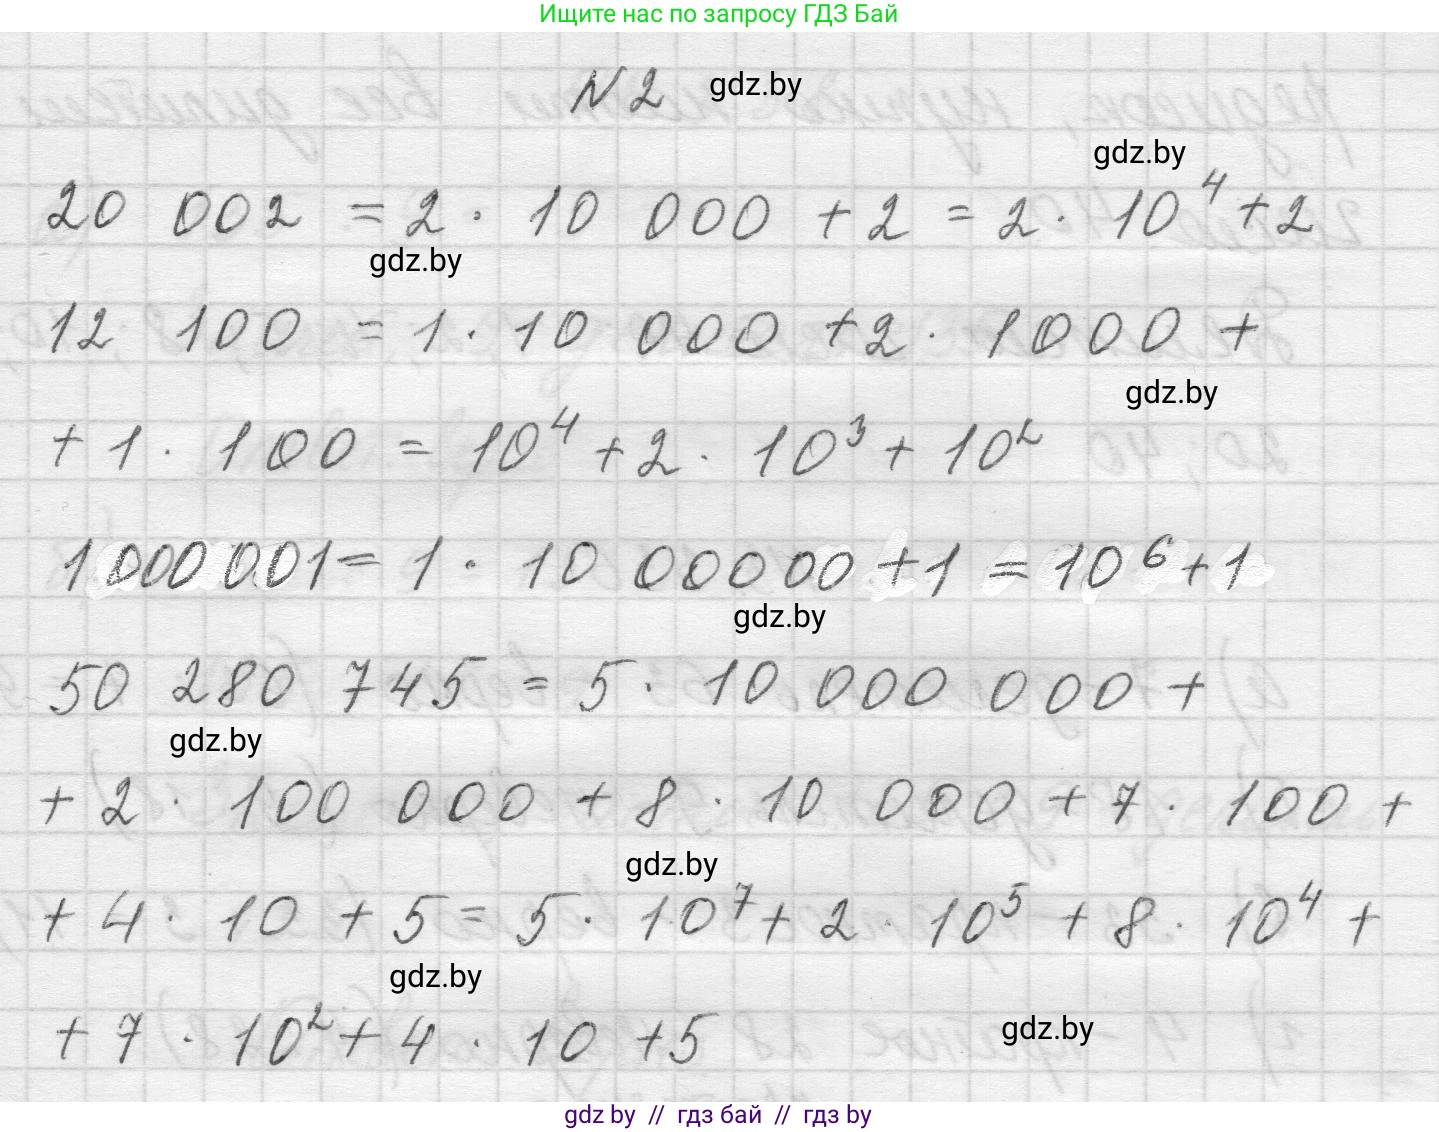 Ищите нас по запросу ГДЗ Бай
N 2 gdz.by
gdz.by
20 002 = 2 · 10 000 + 2 = 2 · 10⁴ + 2
gdz.by
12 100 = 1 · 10 000 + 2 · 1000 +
gdz.by
+ 1 · 100 = 10⁴ + 2 · 10³ + 10²
1000 001 = 1 · 10 00000 + 1 = 10⁶ + 1
gdz.by
50 280 745 = 5 · 10 000 000 +
gdz.by
+ 2 · 100 000 + 8 · 10 000 + 7 · 100 +
gdz.by
+ 4 · 10 + 5 = 5 · 10⁷ + 2 · 10⁵ + 8 · 10⁴ +
gdz.by
+ 7 · 10² + 4 · 10 + 5 gdz.by
gdz by // гдз бай // гдз by